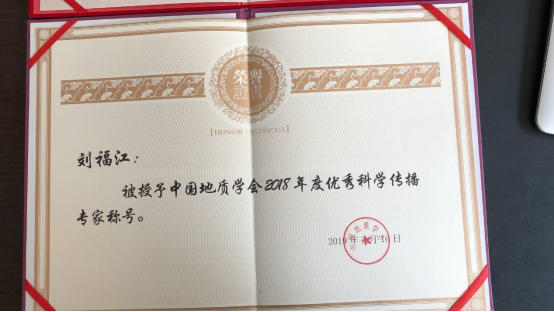 榮譽
證書
HONOR CERTIFICATE
刘福江：
被授予中国地质学会2018年度优秀科学传播
专家称号。
2019年 月16日